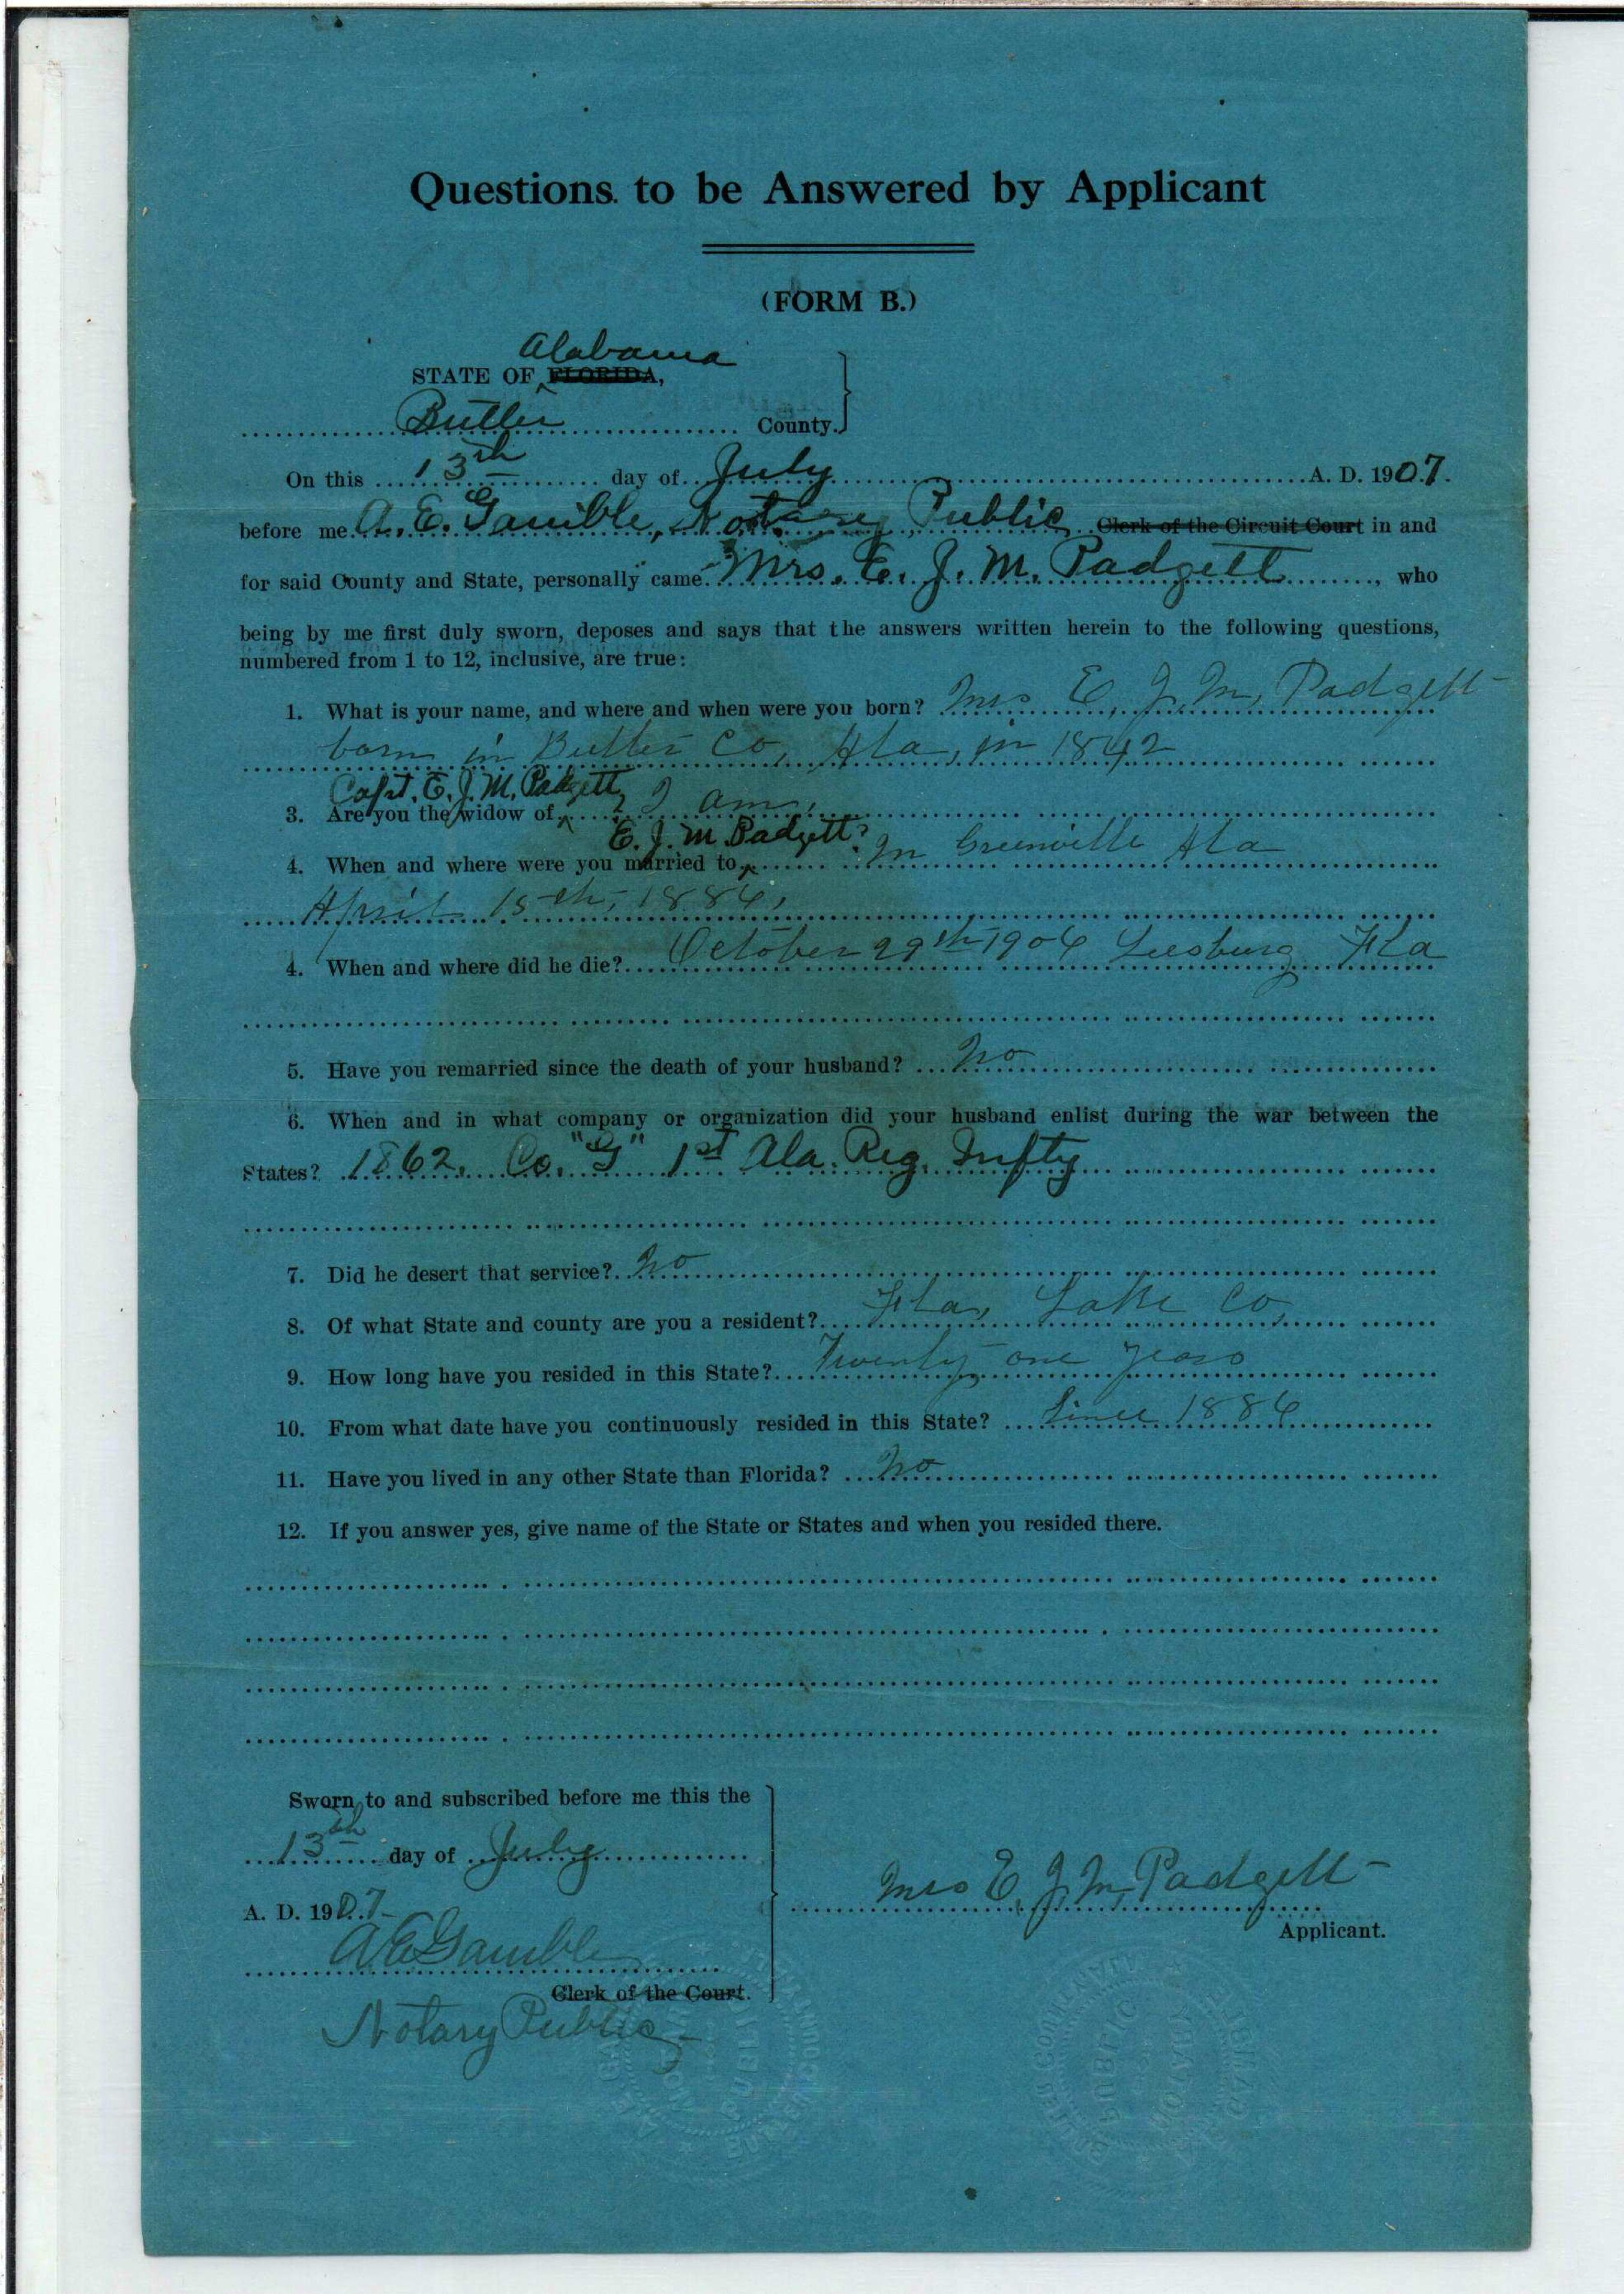 Questions to be Answered by Applicant
(FORM B.)
Alabama
STATE OF FLORIDA,
Butler County.
On this 13th day of July A. D. 1907.
before me A. E. Gamble, Notary Public Clerk of the Circuit Court in and
for said County and State, personally came Mrs. E. J. M. Padgett, who
being by me first duly sworn, deposes and says that the answers written herein to the following questions,
numbered from 1 to 12, inclusive, are true:
1. What is your name, and where and when were you born? Mrs E, J, M, Padgett
born in Butler Co, Ala, in 1842
Capt. E. J. M. Padgett,
3. Are you the widow of ? I am,
E. J. M Padgett?
4. When and where were you married to In Greenville Ala
April 15th, 1886,
4. When and where did he die? October 29th 1906 Leesburg Fla
5. Have you remarried since the death of your husband? No
6. When and in what company or organization did your husband enlist during the war between the
States? 1862. Co. "G" 1st Ala. Reg. Infty
7. Did he desert that service? No
8. Of what State and county are you a resident? Fla, Lake Co,
9. How long have you resided in this State? Twenty one years
10. From what date have you continuously resided in this State? Since 1886
11. Have you lived in any other State than Florida? No
12. If you answer yes, give name of the State or States and when you resided there.
Sworn to and subscribed before me this the
13th day of July
A. D. 1907
A E Gamble
Clerk of the Court.
Notary Public
Mrs E, J, M, Padgett
Applicant.
A. E. GAMBLE
NOTARY PUBLIC
BUTLER COUNTY
NOTARY PUBLIC
BUTLER COUNTY